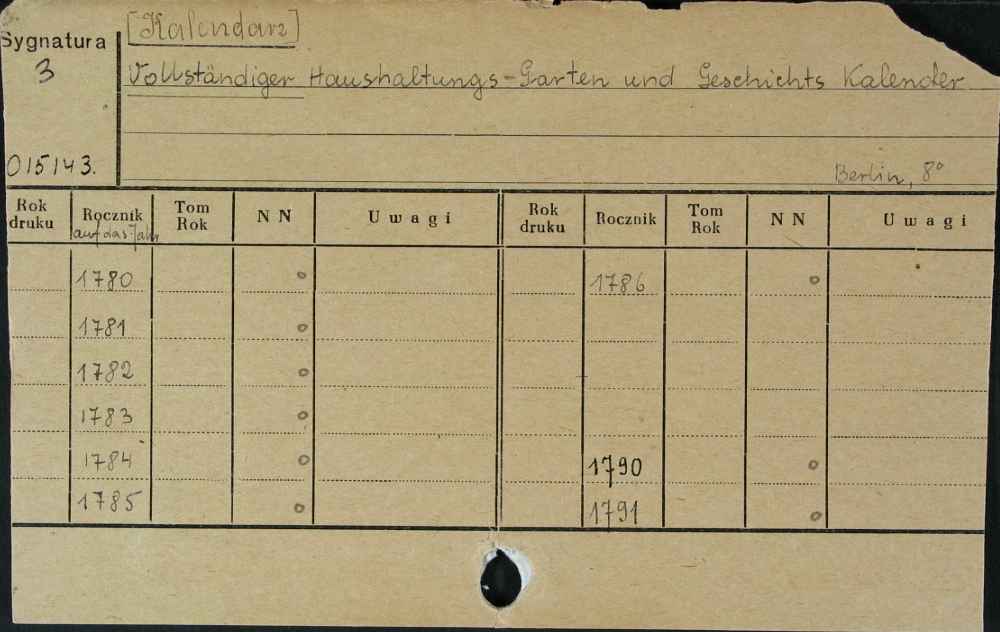 [Kalendarz]
Sygnatura
3
Vollständiger Haushaltungs-Garten und Geschichts Kalender
015143.
Berlin, 8°
Rok druku Rocznik auf das Jahr Tom Rok NN Uwagi Rok druku Rocznik Tom Rok NN Uwagi
1780 o 1786 o
1781 o
1782 o
1783 o
1784 o 1790 o
1785 o 1791 o